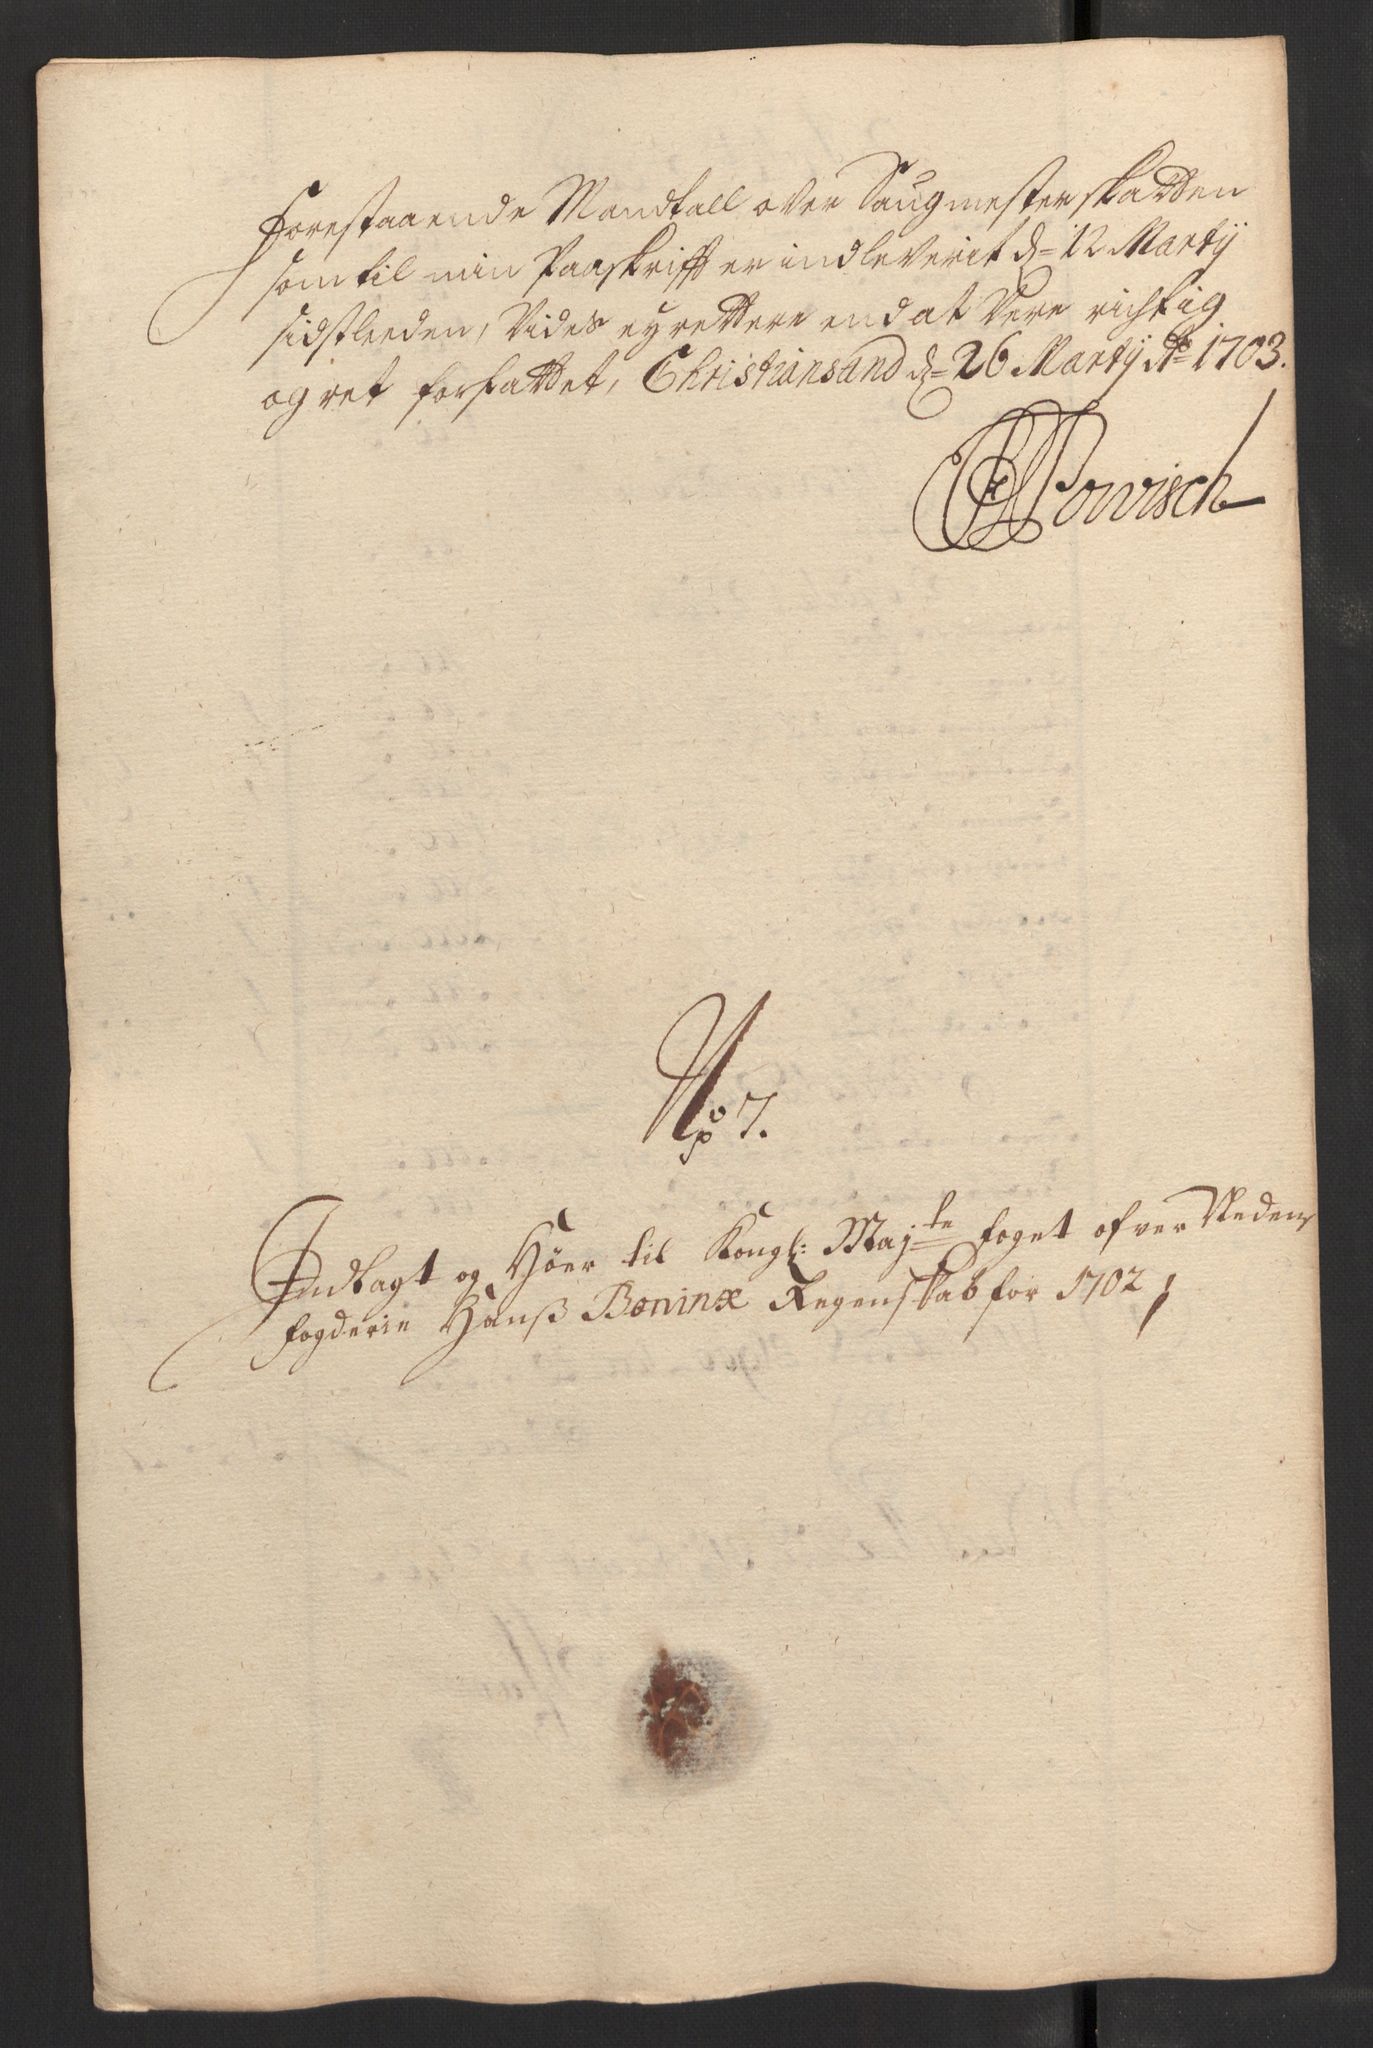 Forestaaende Mandtall over Saugmester skatten
som til min Paaskrifft er indleverit d= 12 Martij
sidstleeden, Vides ey rettere end at Vere richtig
og ret forfattet, Christiansand d= 26 Martij Ao 1703.
Powisch
No 7.
Indlagt og Hører til Kongl: Maj.te foget ofver Nedens
fogderie Hanß Beninx Regenskab for 1702